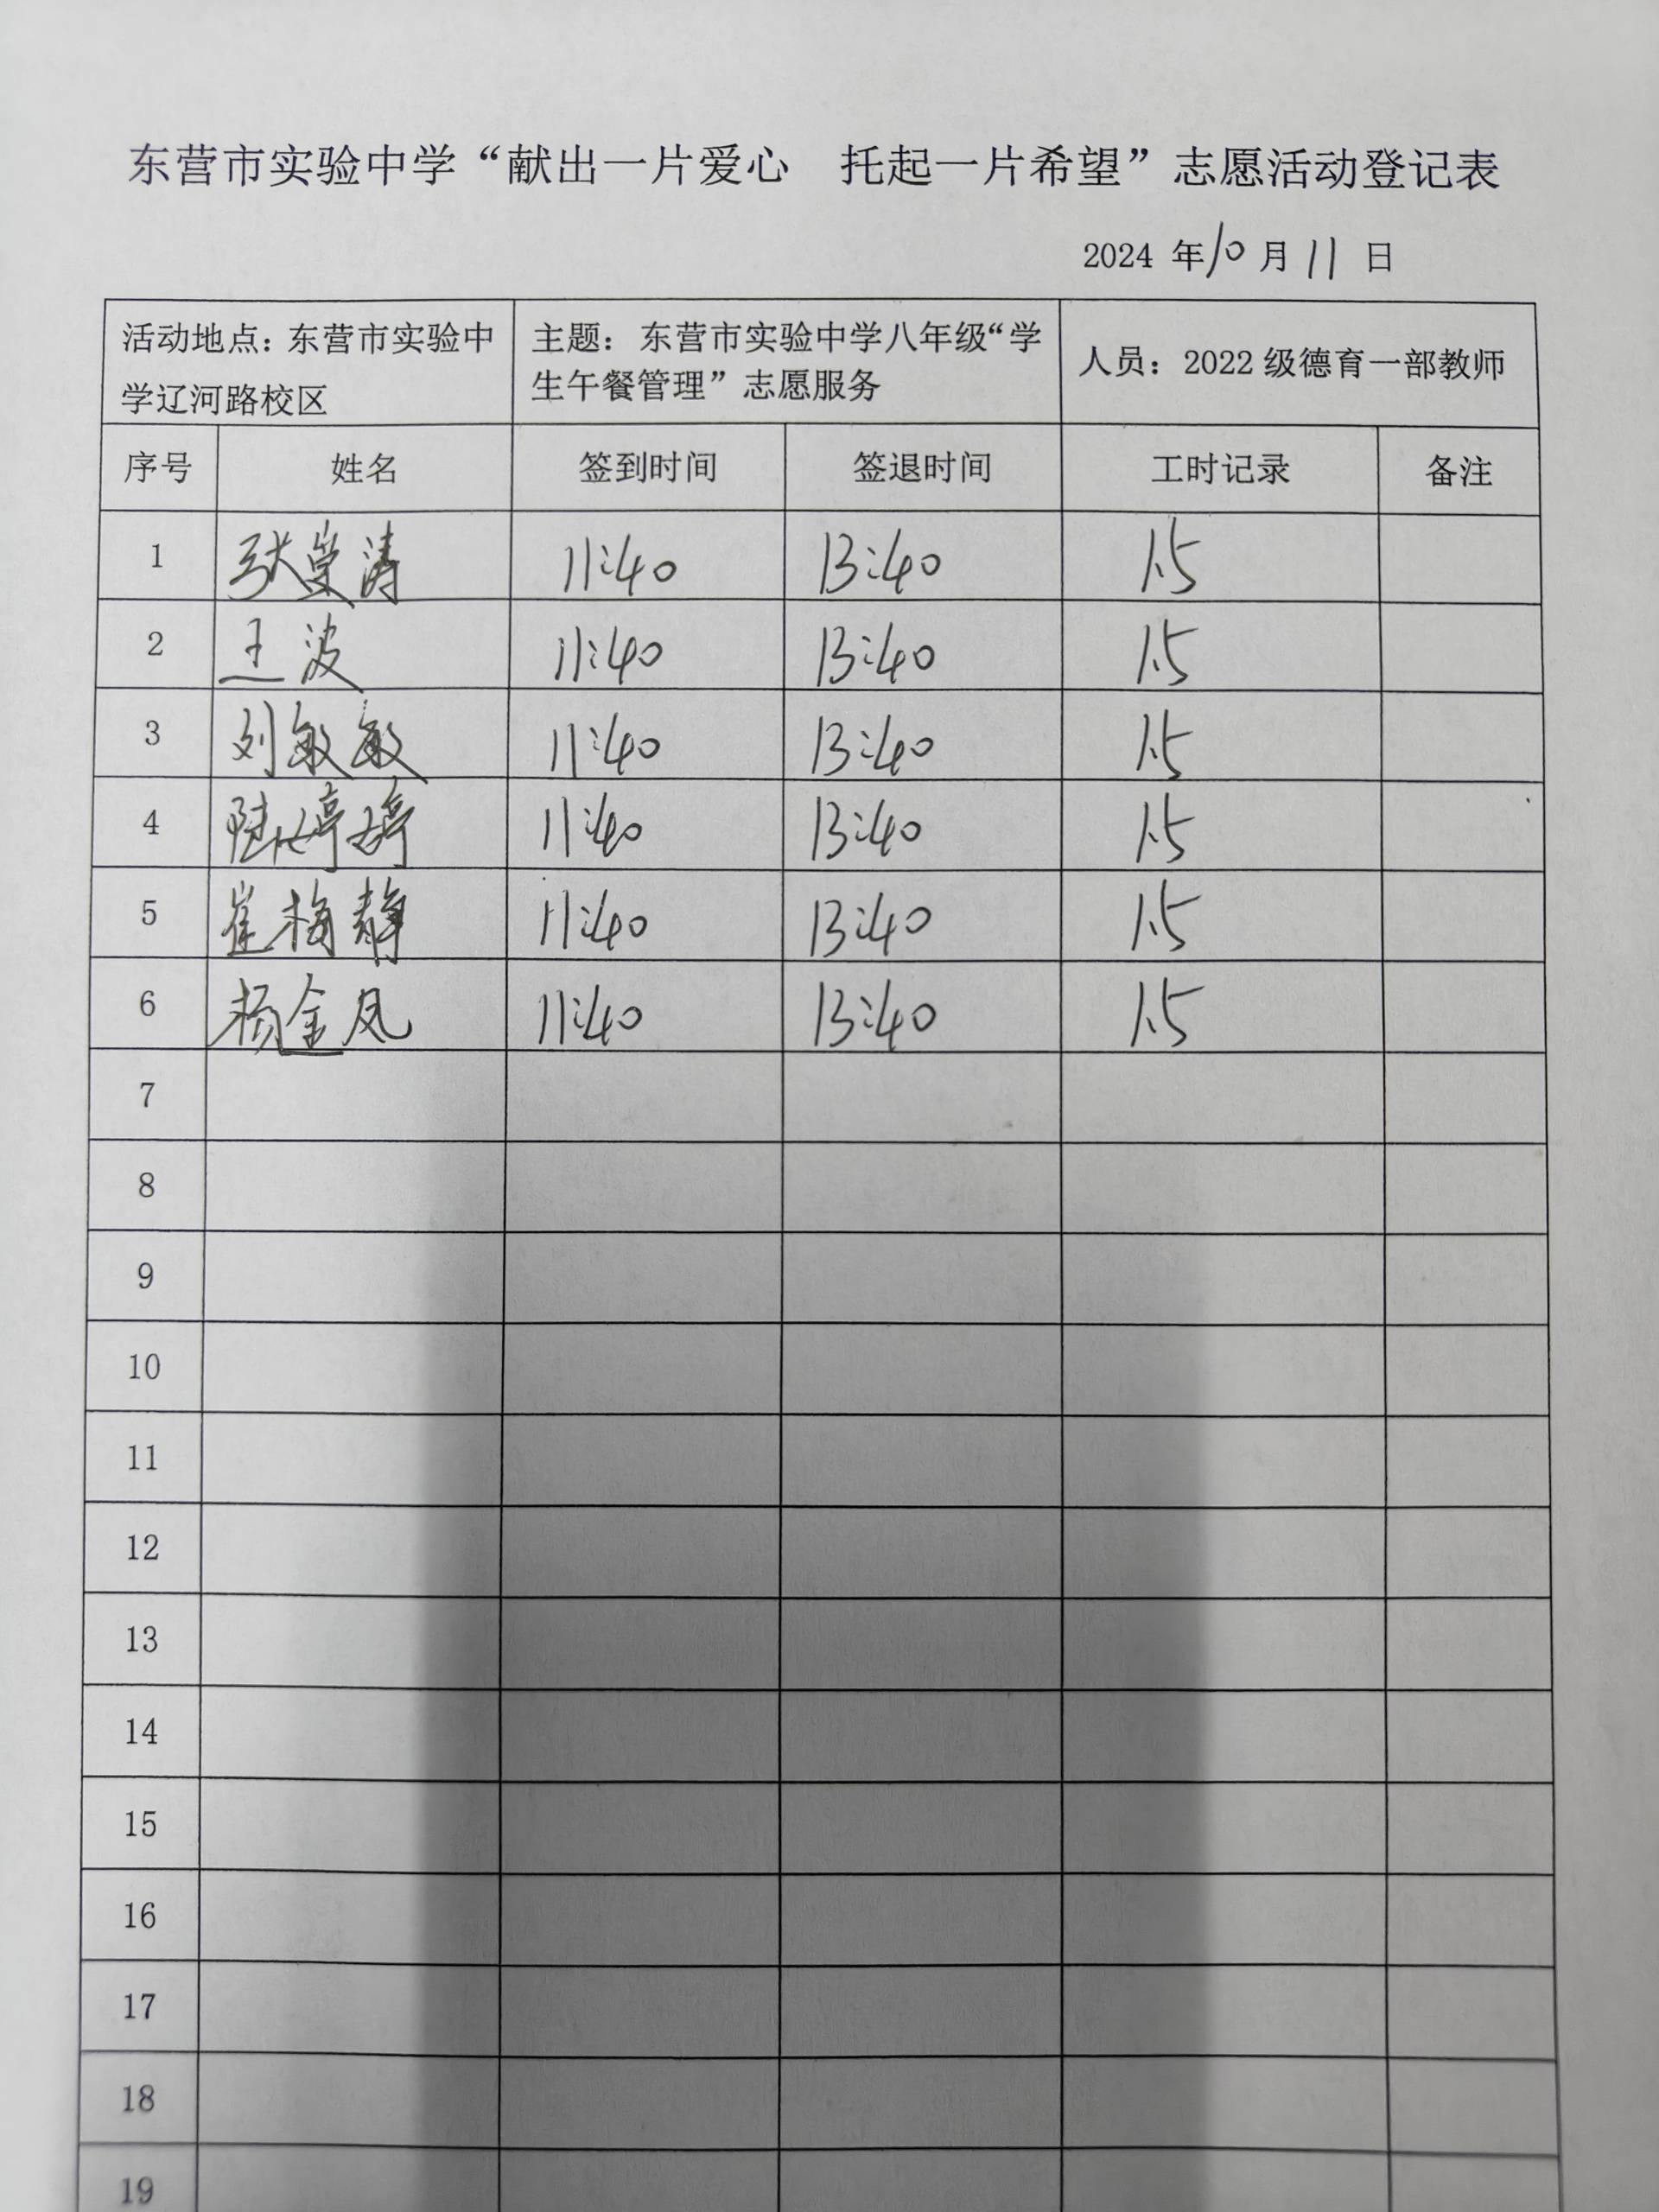 东营市实验中学“献出一片爱心　托起一片希望”志愿活动登记表
2024 年 10 月 11 日
活动地点：东营市实验中学辽河路校区 主题：东营市实验中学八年级“学生午餐管理”志愿服务 人员：2022 级德育一部教师
序号 姓名 签到时间 签退时间 工时记录 备注
1 张 涛 11:40 13:40 1.5
2 王波 11:40 13:40 1.5
3 刘敏敏 11:40 13:40 1.5
4 陆婷婷 11:40 13:40 1.5
5 崔梅静 11:40 13:40 1.5
6 杨金凤 11:40 13:40 1.5
7
8
9
10
11
12
13
14
15
16
17
18
19